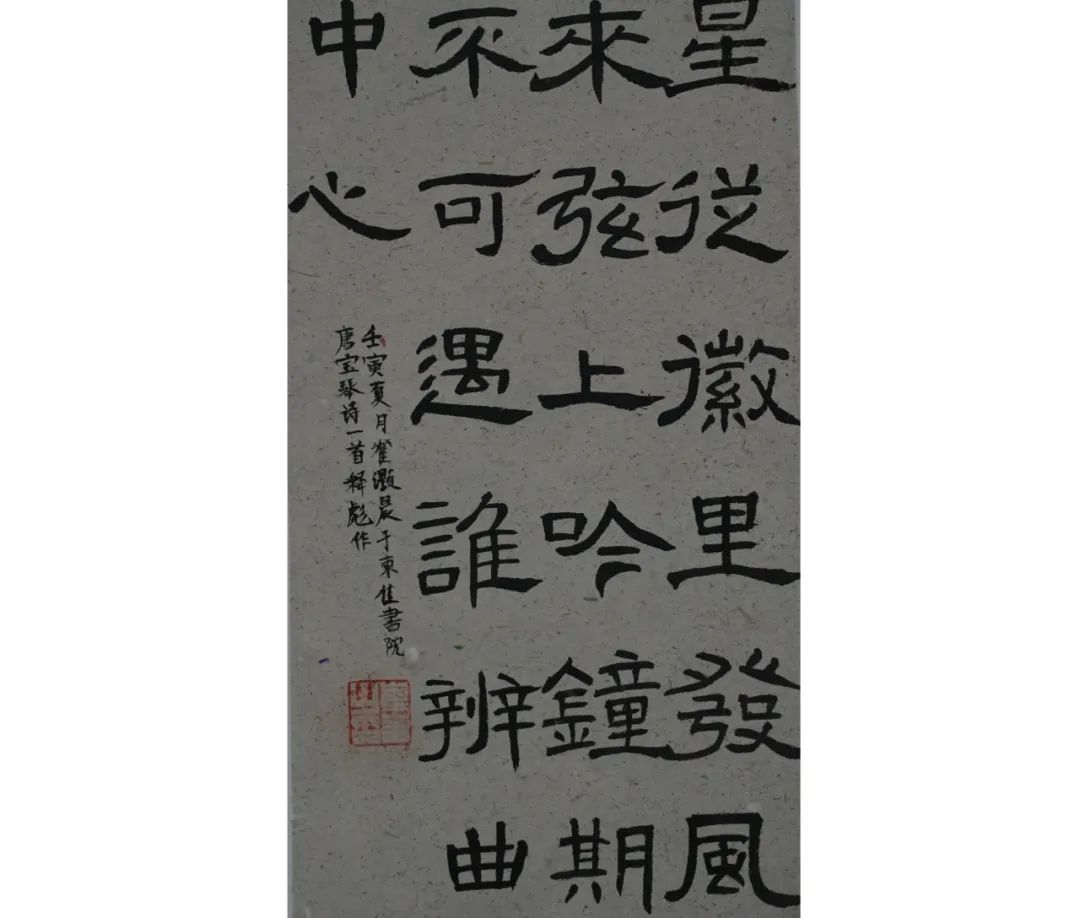 星從徽里發風
來弦上吟鐘期
不可遇誰辨曲
中心
壬寅夏月崔灝晨于東佳書院
唐宝琴诗一首释彪作